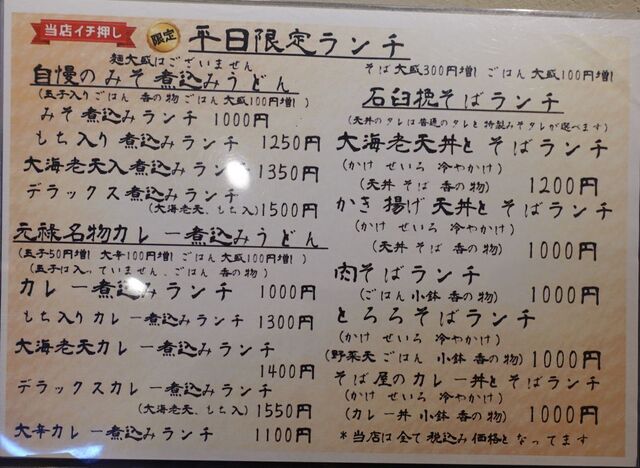 当店イチ押し
限定
平日限定ランチ
麺大盛はございません
自慢のみそ煮込みうどん
(玉子入りごはん 香の物 ごはん大盛100円増)
みそ煮込みランチ 1000円
もち入り煮込みランチ 1250円
大海老天入煮込みランチ 1350円
デラックス煮込みランチ
(大海老天、もち入) 1500円
元禄名物カレー煮込みうどん
(玉子50円増! 大辛100円増 ごはん大盛100円増!)
(玉子は入っていません、ごはん 香の物)
カレー煮込みランチ 1000円
もち入りカレー煮込みランチ 1300円
大海老天カレー煮込みランチ
1400円
デラックスカレー煮込みランチ
(大海老天、もち入) 1550円
大辛カレー煮込みランチ 1100円
そば大盛300円増! ごはん大盛100円増!
石臼挽そばランチ
(天丼のタレは普通のタレと特製みそタレが選べます)
大海老天丼とそばランチ
(かけ せいろ 冷やかけ)
(天丼 そば 香の物) 1200円
かき揚げ天丼とそばランチ
(かけ せいろ 冷やかけ)
(天丼 そば 香の物) 1000円
肉そばランチ
(ごはん 小鉢 香の物) 1000円
とろろそばランチ
(かけ せいろ 冷やかけ)
(野菜天 ごはん 小鉢 香の物) 1000円
そば屋のカレー丼とそばランチ
(かけ せいろ 冷やかけ)
(カレー丼 小鉢 香の物) 1000円
*当店は全て税込み価格となってます